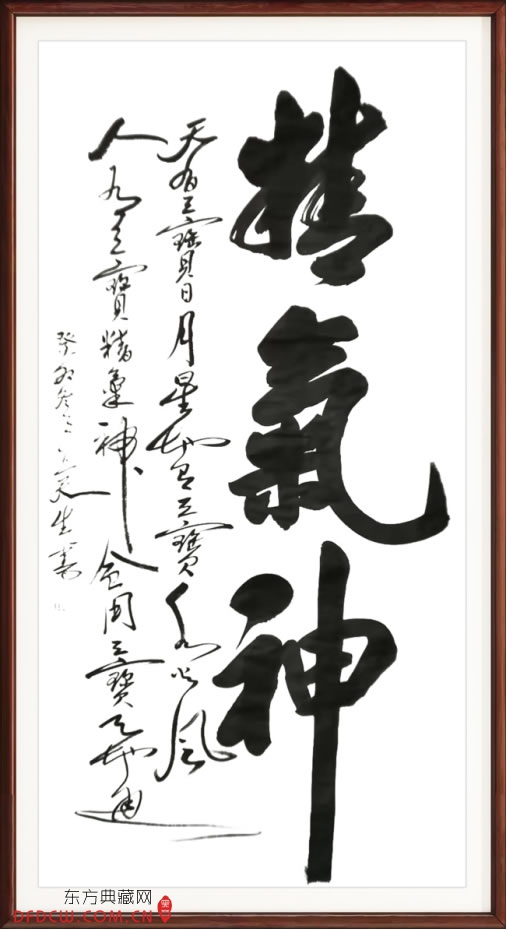 精氣神
天有三寶日月星地有三寶水火風
人有三寶精氣神会用三寶天地通
癸卯冬生書
东方典藏网
DFDCW.COM.CN